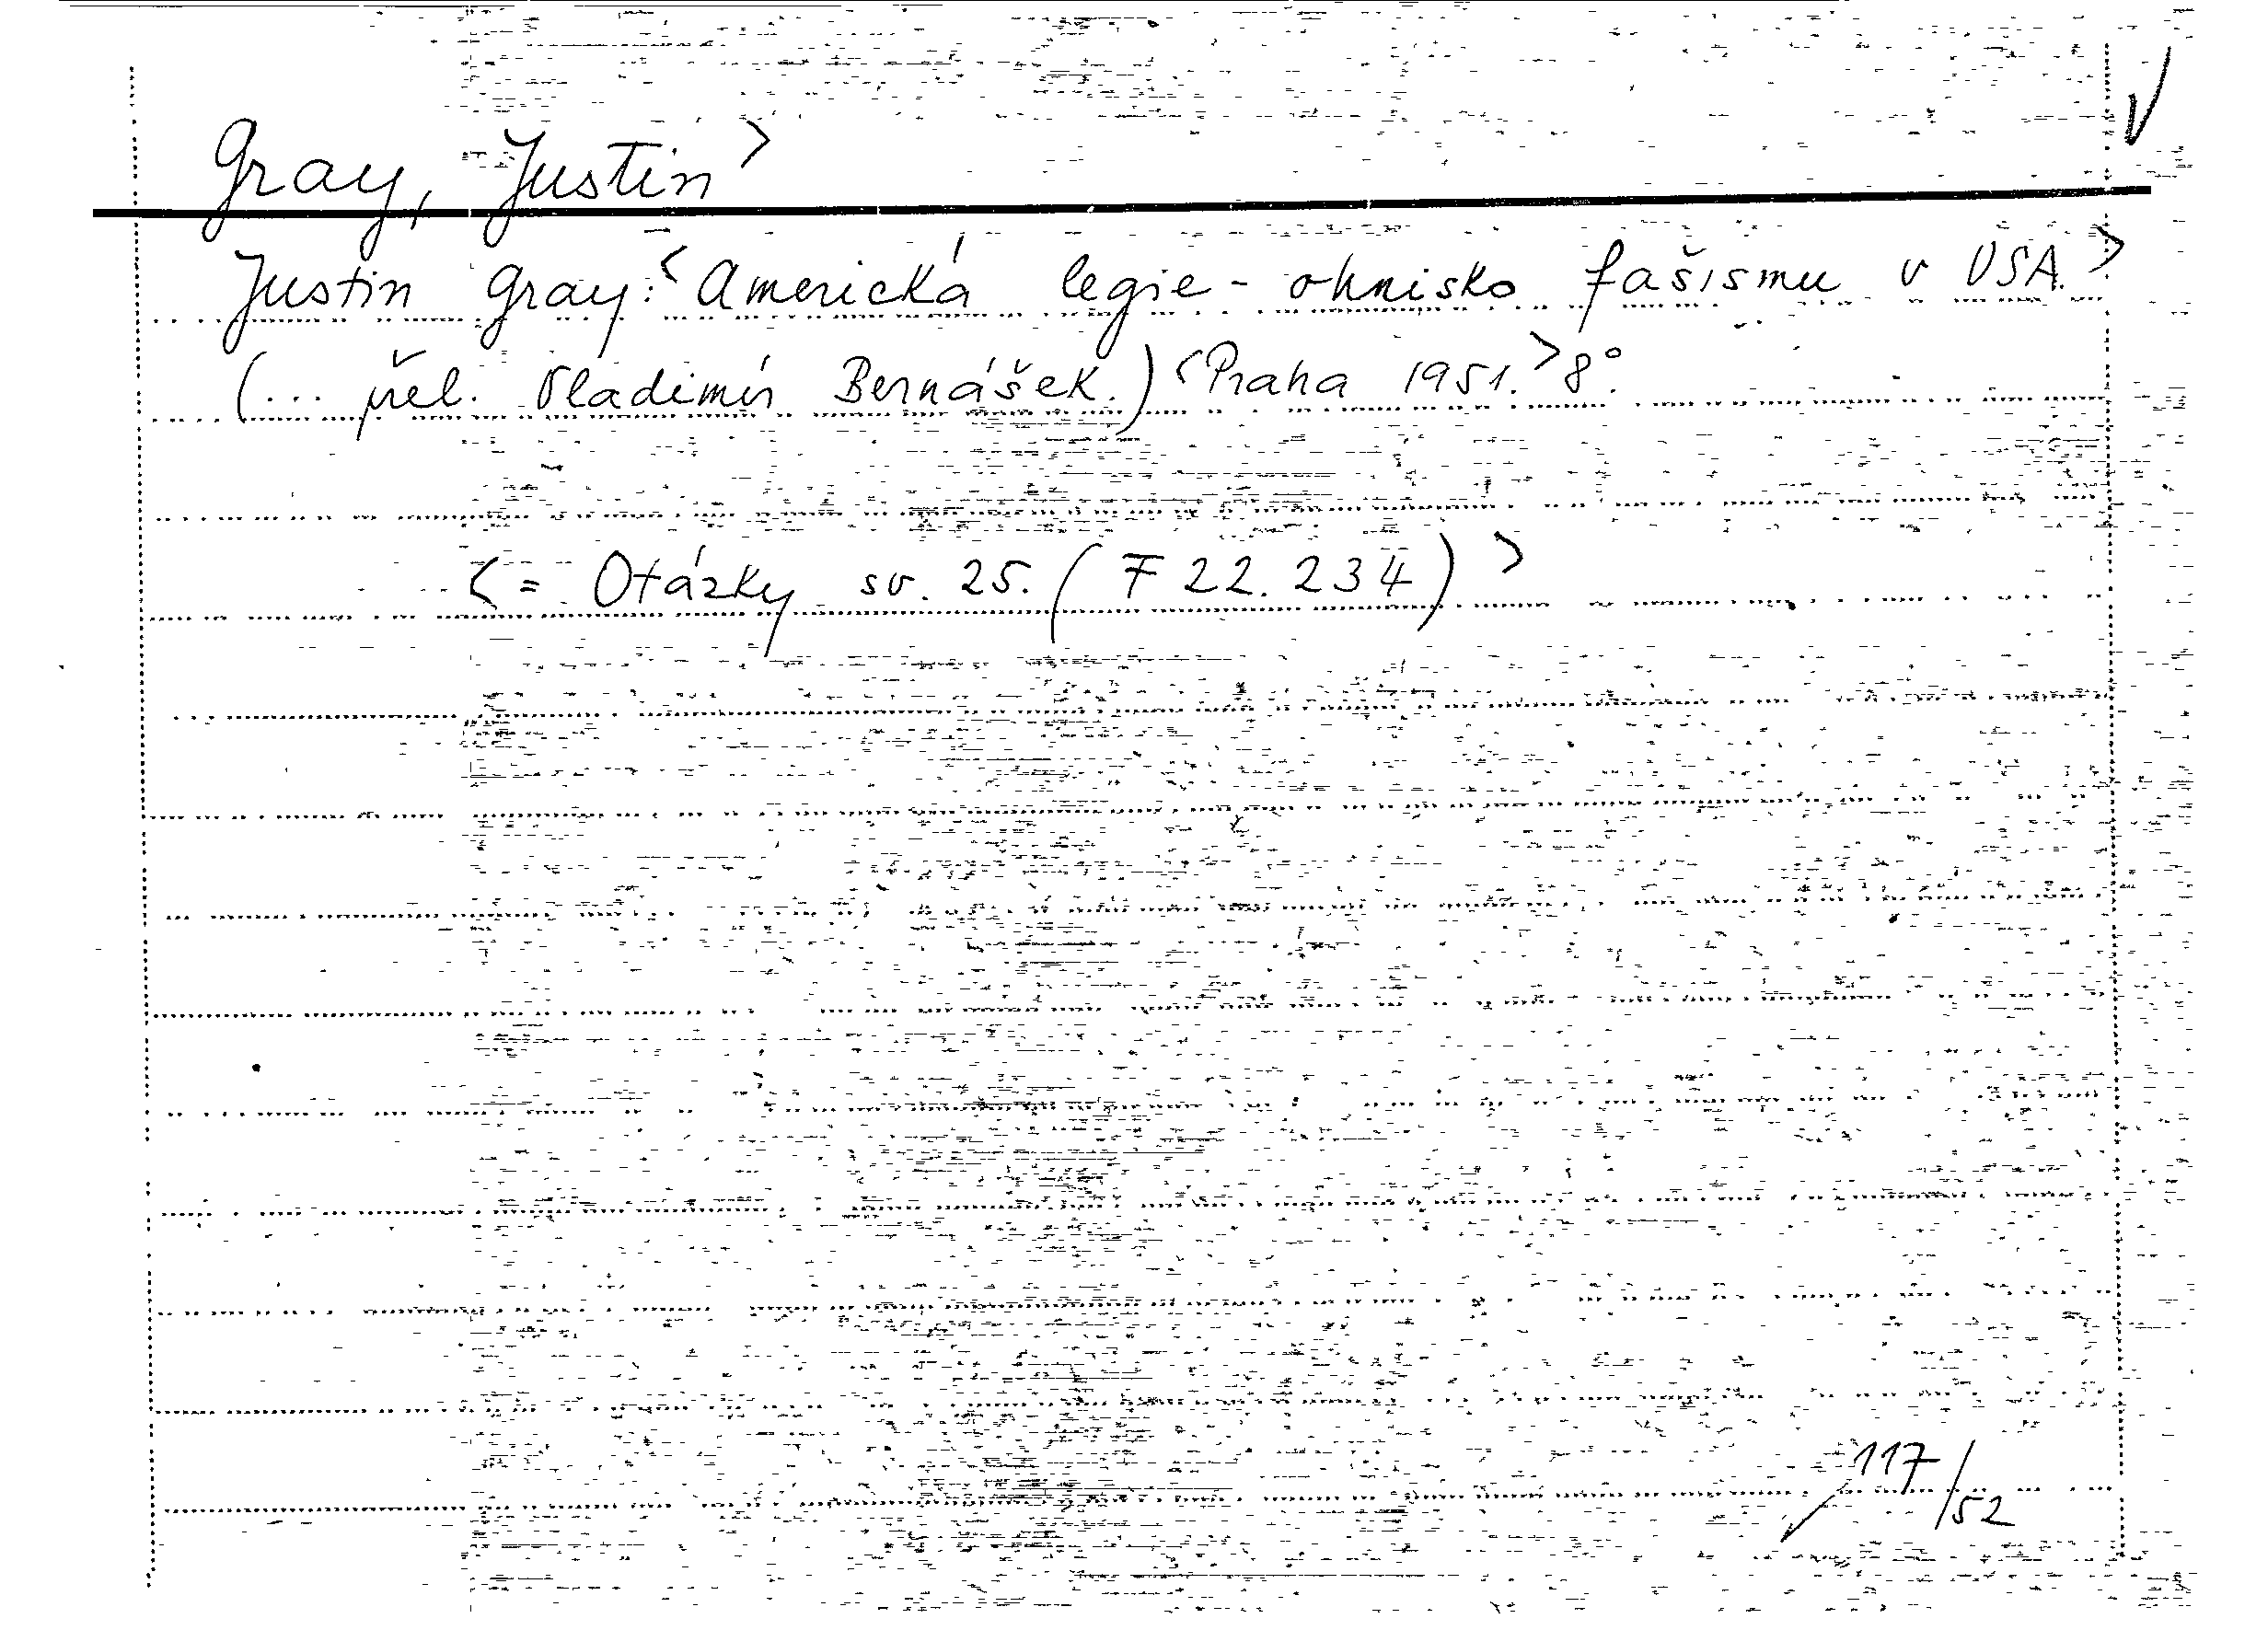 Gray, Justin>
Justin Gray: <Americká legie - ohnisko fašismu v USA.>
(... přel. Vladimír Bernášek.) <Praha 1951.> 8°.
<= Otázky sv. 25. (F 22.234)>
117/52